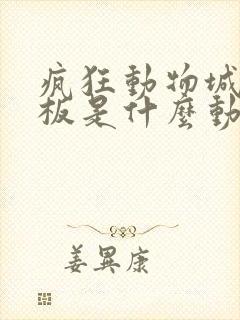 瘋狂動物城
板是什麼動
姜異康